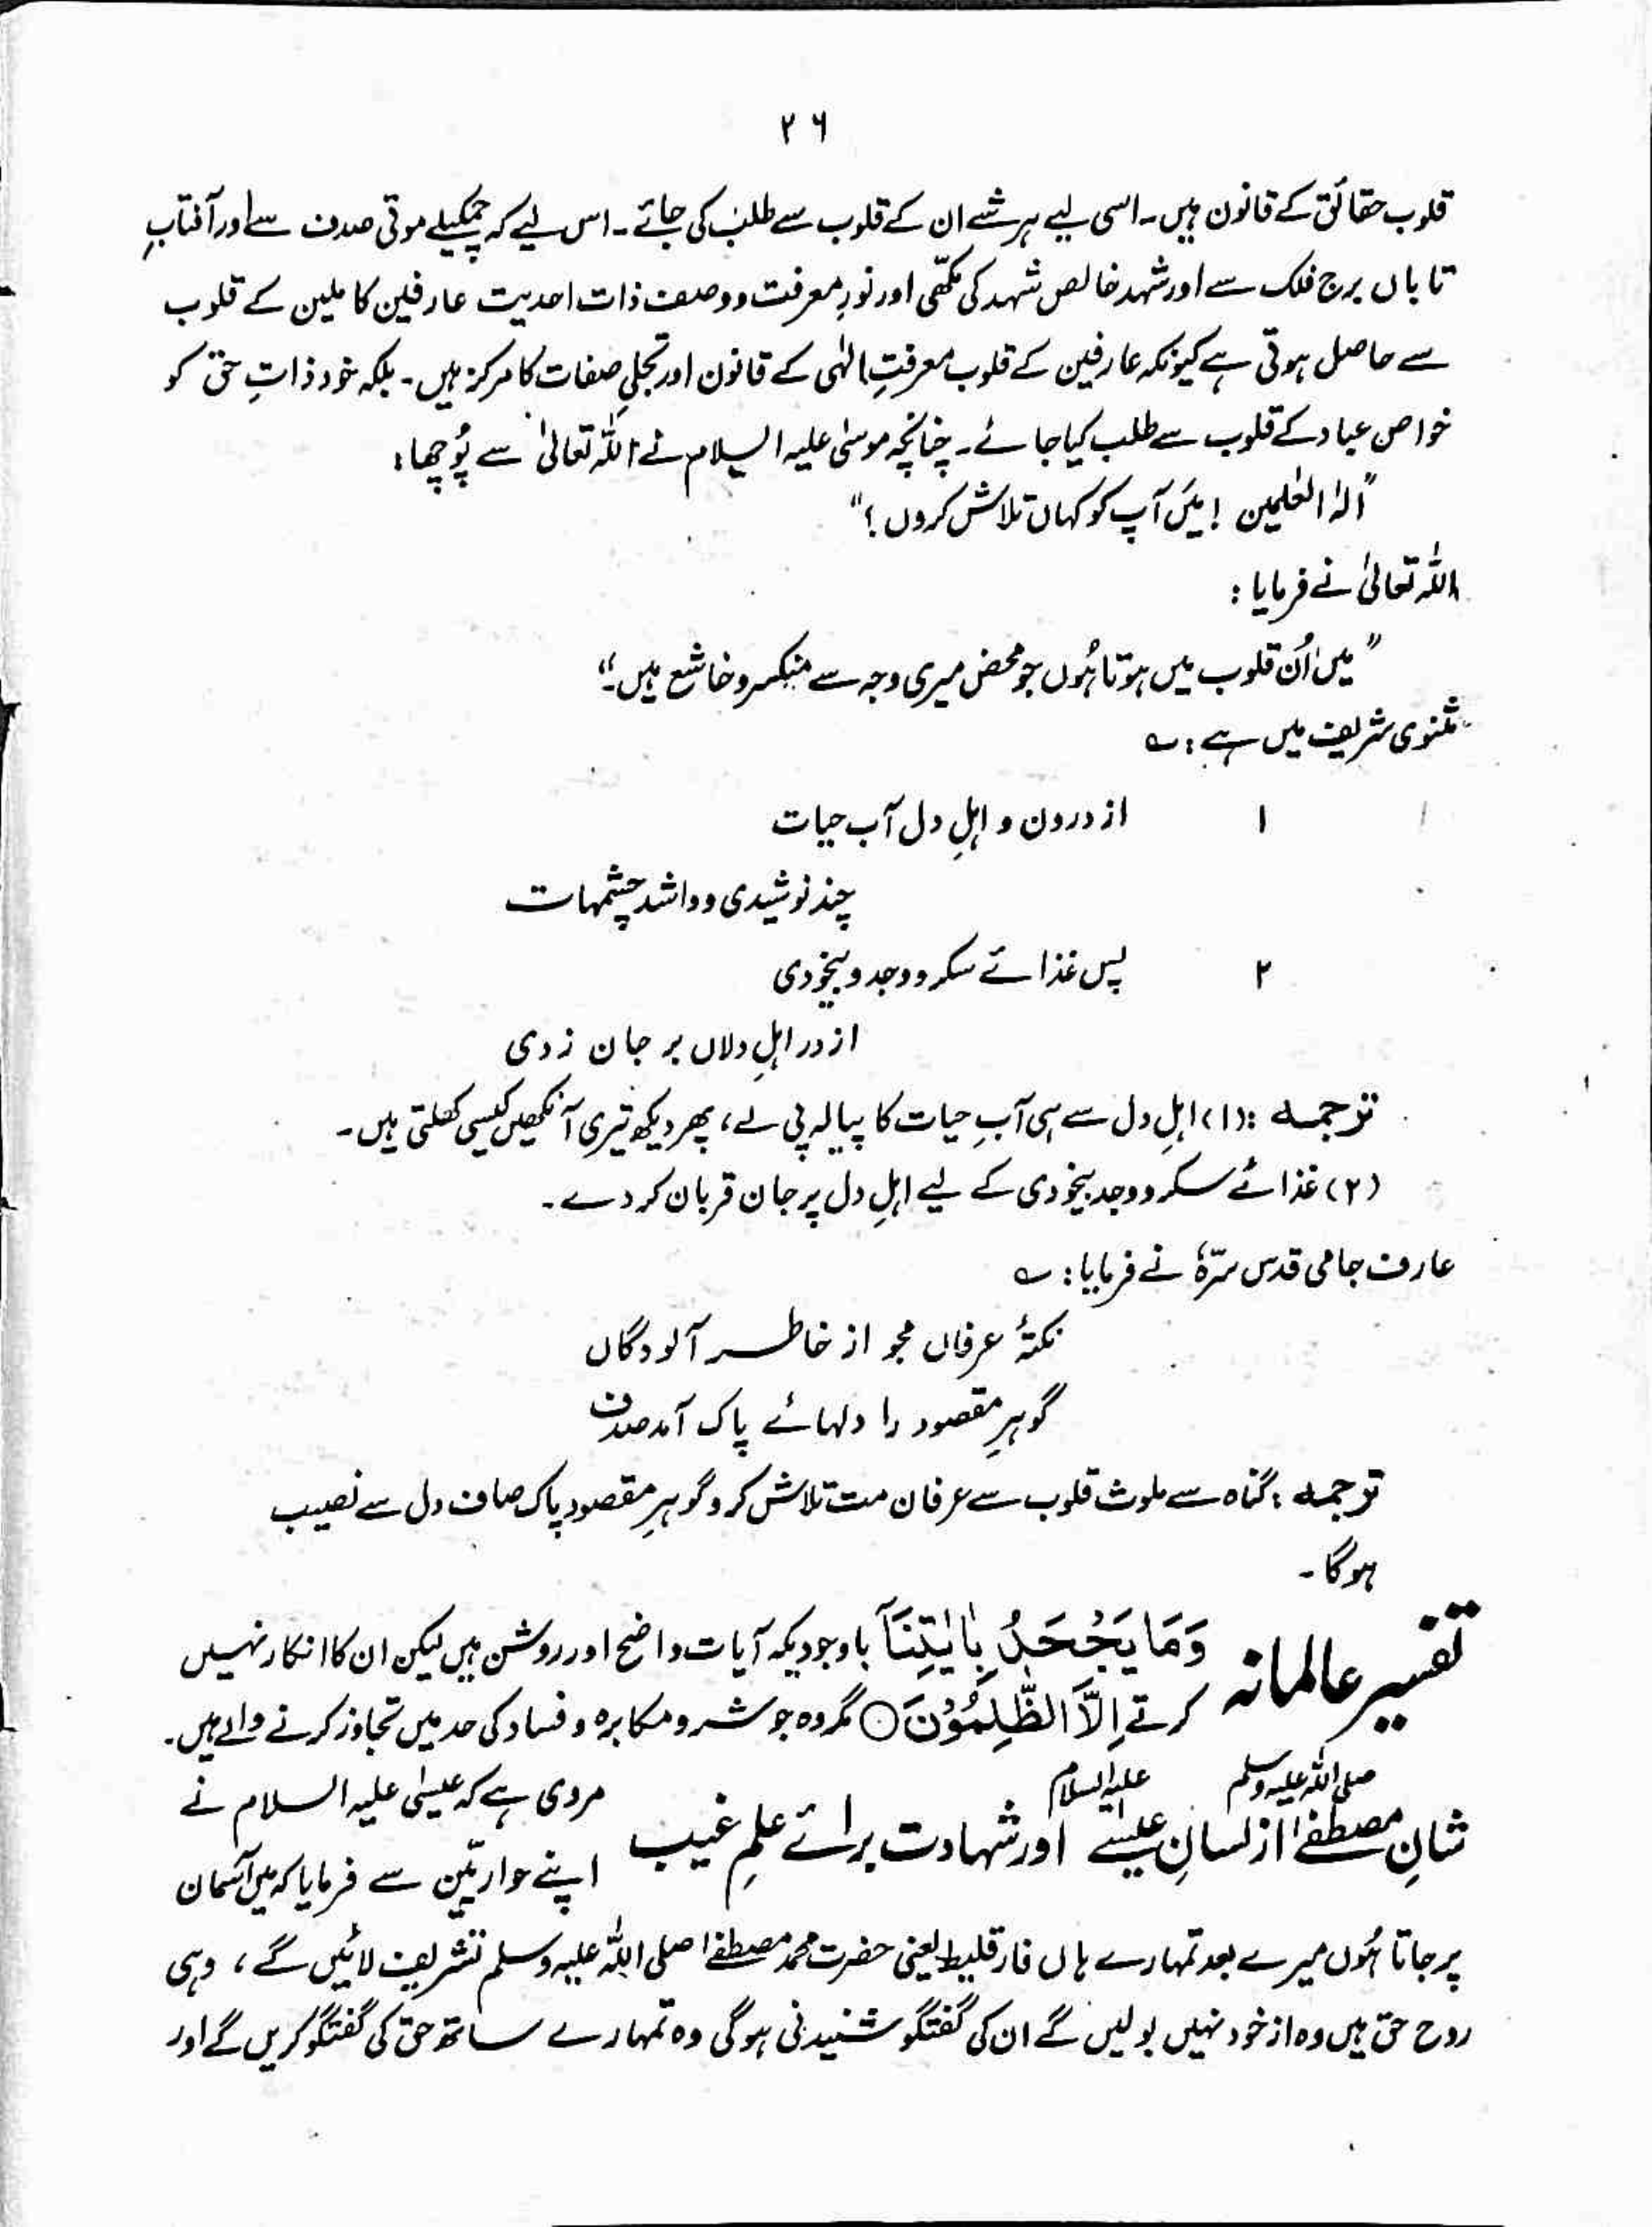 ۲۶
قلوب حقائق کے قانون ہیں۔ اسی لیے ہر شے ان کے قلوب سے طلب کی جائے۔ اس لیے کہ چمکیلے موتی صدف سے اور آفتابِ
تاباں برج فلک سے اور شہد خالص شہد کی مکھّی اور نورِ معرفت و وصف ذات احدیت عارفین کاملین کے قلوب
سے حاصل ہوتی ہے کیونکہ عارفین کے قلوب معرفتِ الٰہی کے قانون اور تجلیِ صفات کا مرکز ہیں۔ بلکہ خود ذاتِ حق کو
خواص عباد کے قلوب سے طلب کیا جائے۔ چنانچہ موسٰی علیہ السلام نے اللہ تعالٰی سے پُوچھا:
"الٰہ العٰلمین! میَں آپ کو کہاں تلاش کروں؟"
اللہ تعالٰی نے فرمایا:
"میں اُن قلوب میں ہوتا ہُوں جو محض میری وجہ سے منکسر و خاشع ہیں۔"
مثنوی شریف میں ہے: ؎
۱ از درون و اہلِ دل آب حیات
چند نوشیدی و واشد چشمہات
۲ پس غذائے سکر و وجد و بیخودی
از در اہلِ دلاں بر جان زدی
ترجمہ: (۱) اہلِ دل سے ہی آبِ حیات کا پیالہ پی لے، پھر دیکھ تیری آنکھیں کیسی کھلتی ہیں۔
(۲) غذائے سکر و وجد بیخودی کے لیے اہلِ دل پر جان قربان کر دے۔
عارف جامی قدس سرّہٗ نے فرمایا: ؎
نکتۂ عرفاں مجو از خاطر آلودگاں
گوہرِ مقصود را دلہائے پاک آمد صدف
ترجمہ: گناہ سے ملوث قلوب سے عرفان مت تلاش کرو گوہرِ مقصود پاک صاف دل سے نصیب
ہوگا۔
تفسیر عالمانہ وَمَا یَجْحَدُ بِاٰیٰتِنَآ باوجودیکہ آیات واضح اور روشن ہیں لیکن ان کا انکار نہیں
کرتے اِلَّا الظّٰلِمُوْنَ○ مگر وہ جو شر و مکابرہ و فساد کی حد میں تجاوز کرنے والے ہیں۔
شانِ مصطفٰے صلی اللہ علیہ وسلم از لسانِ عیسٰے علیہ السلام اور شہادت برائے علمِ غیب مروی ہے کہ عیسٰی علیہ السلام نے
اپنے حواریّین سے فرمایا کہ میں آسمان
پر جاتا ہُوں میرے بعد تمہارے ہاں فارقلیط یعنی حضرت محمد مصطفٰے صلی اللہ علیہ وسلم تشریف لائیں گے، وہی
روح حق ہیں وہ از خود نہیں بولیں گے ان کی گفتگو شنیدنی ہوگی وہ تمہارے ساتھ حق کی گفتگو کریں گے اور